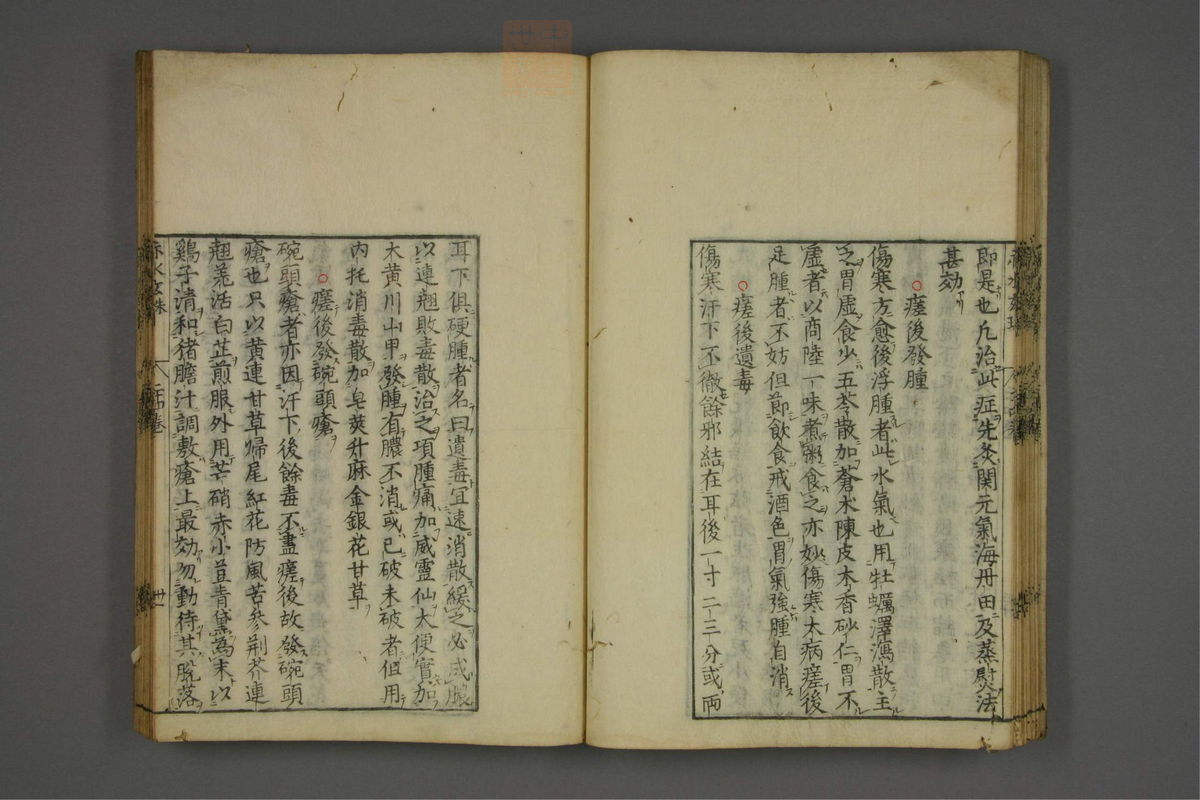 即是也凡治此症先灸関元氣海丹田及蒸熨法
甚効
○瘥後發腫
傷寒方愈後浮腫者此水氣也用牡蠣澤瀉散主
之胃虛食少五苓散加蒼朮陳皮木香砂仁胃不
虛者以商陸一味煮粥食之亦妙傷寒大病瘥後
足腫者不妨但節飲食戒酒色胃氣強腫自消
○瘥後遺毒
傷寒汗下不徹餘邪結在耳後一寸二三分或兩
耳下俱硬腫者名曰遺毒宜速消散緩之必成膿
以連翹敗毒散治之項腫痛加威靈仙大便實加
大黄川山甲發腫有膿不消或已破未破者但用
內托消毒散加皂莢升麻金銀花甘草
○瘥後發碗頭瘡
碗頭瘡者亦因汗下後餘毒不盡瘥後故發碗頭
瘡也只以黄連甘草歸尾紅花防風苦參荆芥連
翹羌活白芷煎服外用芒硝赤小荳青黛為末以
鷄子清和猪膽汁調敷瘡上最効勿動待其脫落
赤水玄珠